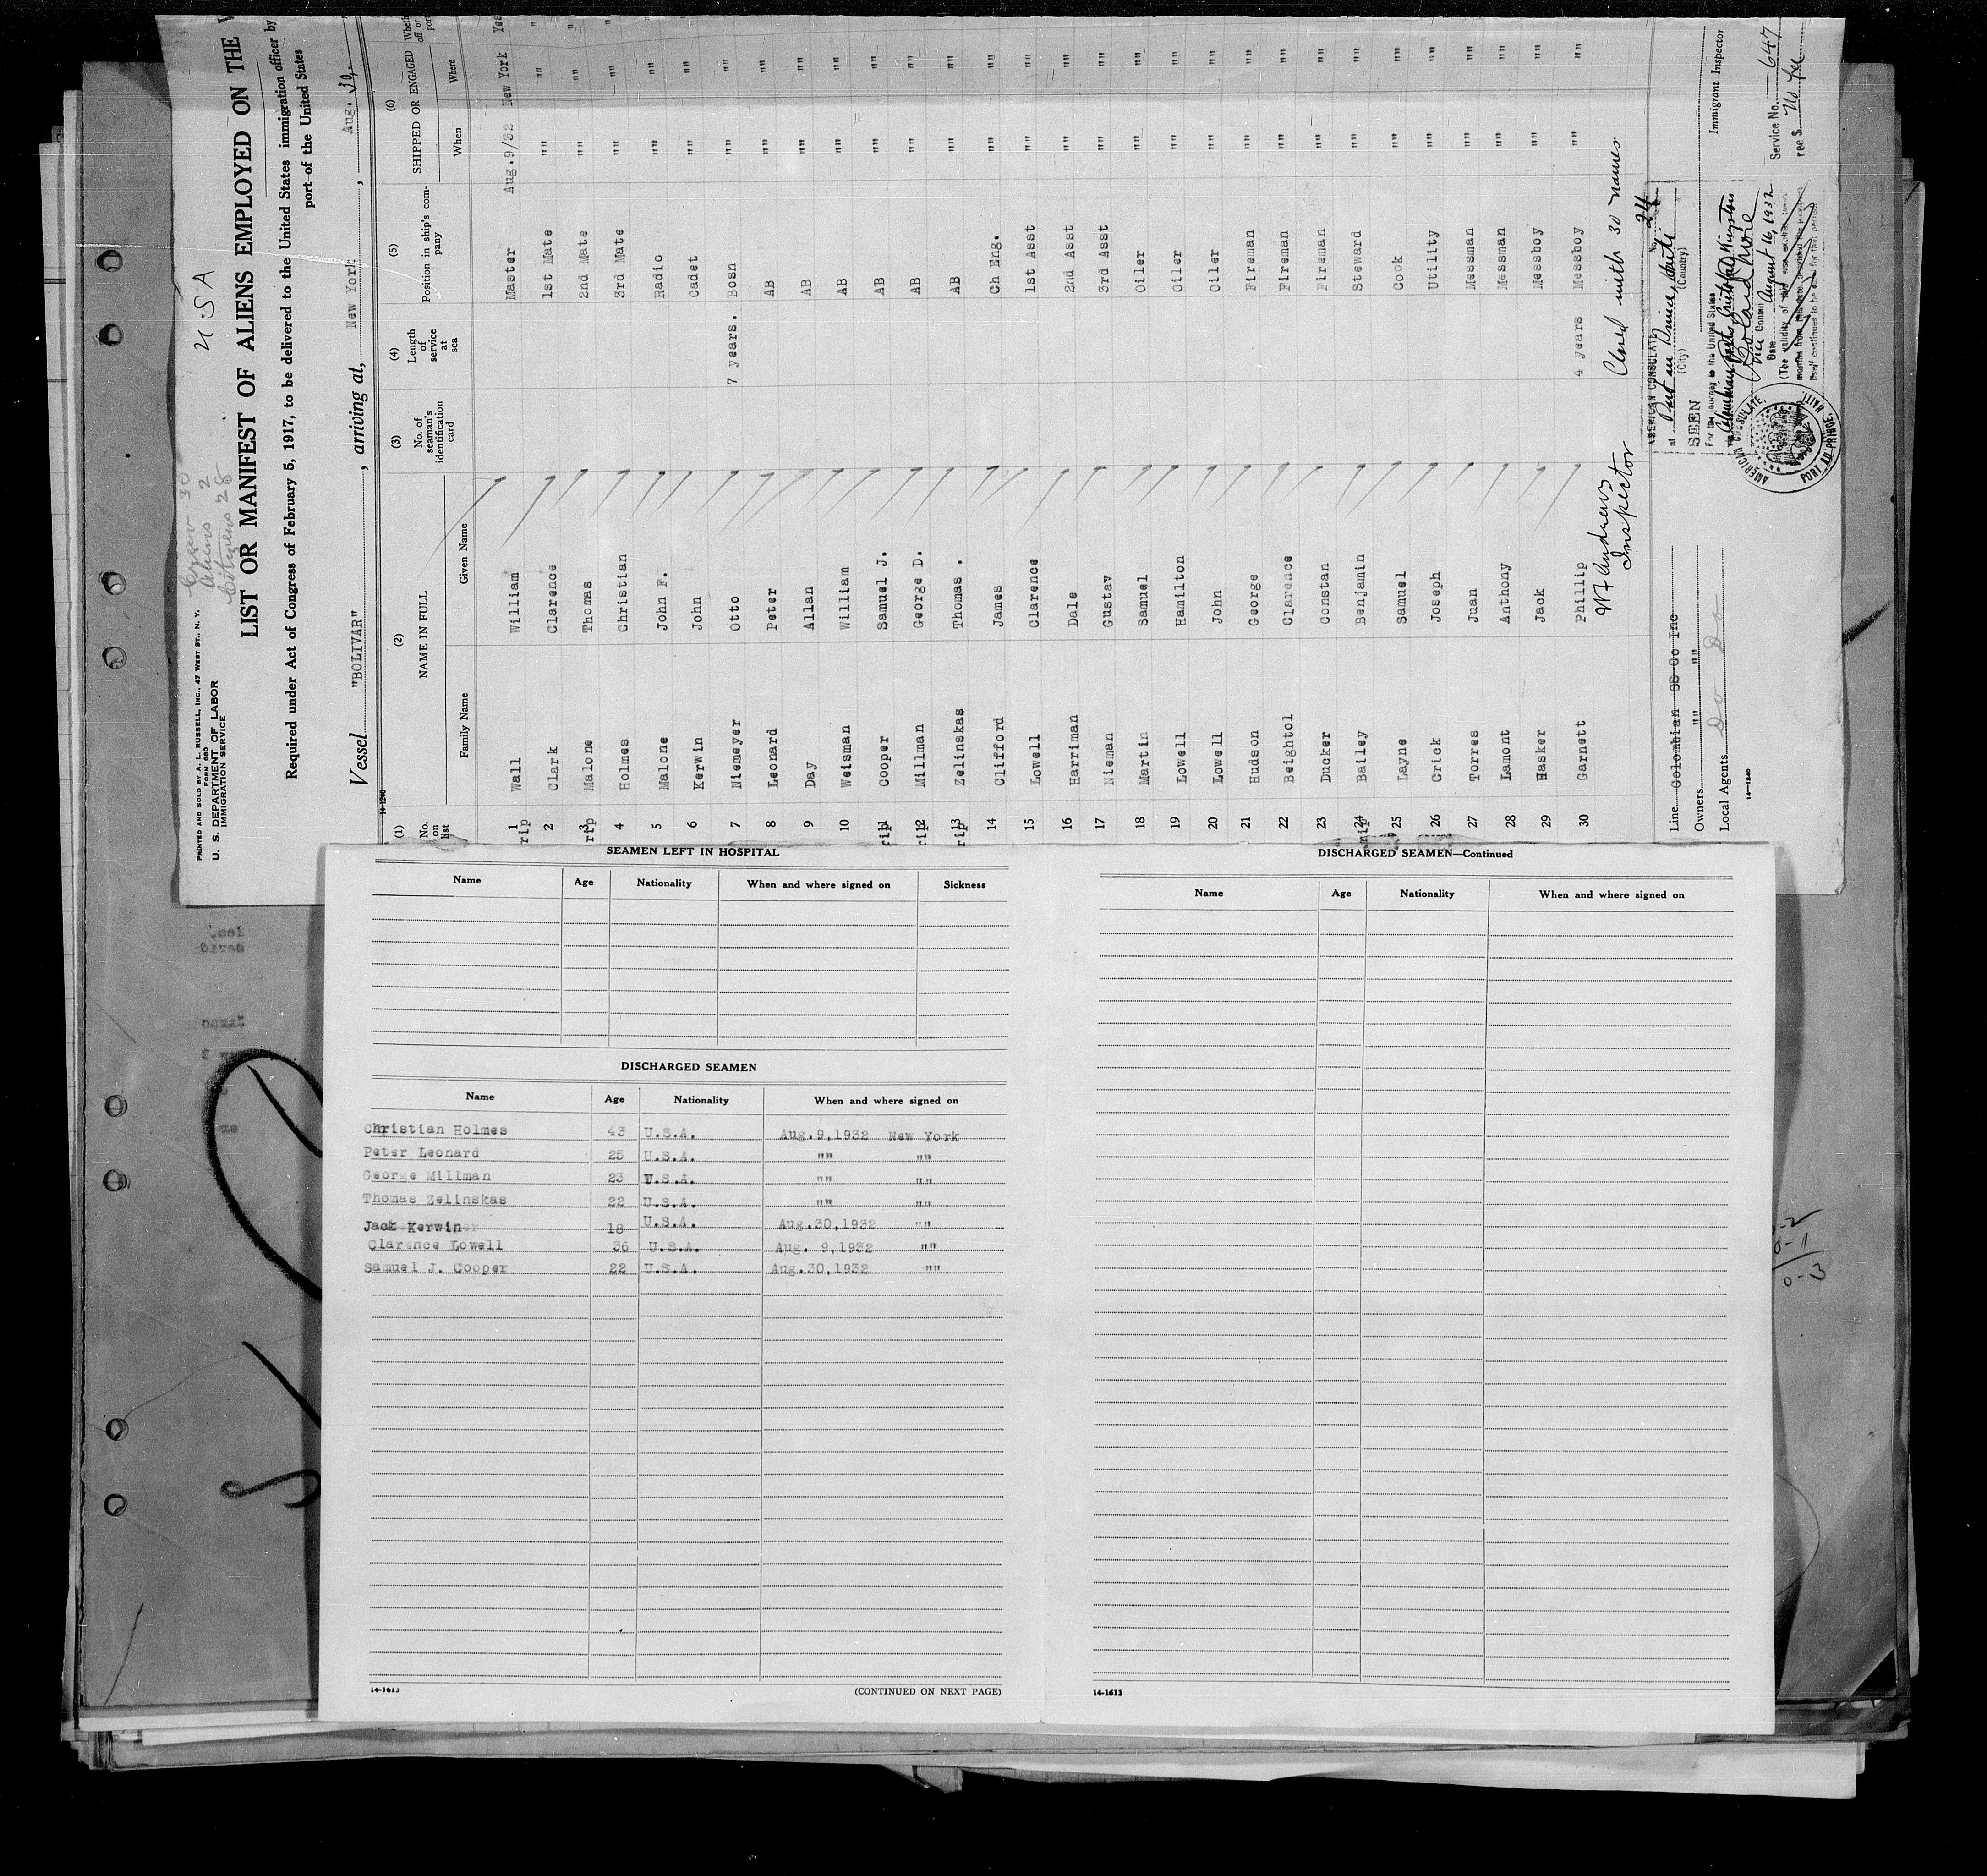 U.S.A
Crew 30
Aliens 2
Citizens 28
PRINTED AND SOLD BY A. L. RUSSELL, INC., 47 WEST ST., N. Y.
FORM 680
U. S. DEPARTMENT OF LABOR
IMMIGRATION SERVICE
LIST OR MANIFEST OF ALIENS EMPLOYED ON THE
Required under Act of Congress of February 5, 1917, to be delivered to the United States immigration officer by
port of the United States
Vessel "BOLIVAR", arriving at, New York, Aug. 30,
14-1240
(1) (2) (3) (4) (5) (6)
No. on list NAME IN FULL No. of seaman's identification card Length of service at sea Position in ship's company SHIPPED OR ENGAGED
Family Name Given Name When Where
1 Wall William Master Aug.9/32 New York Yes
2 Clark Clarence 1st Mate "" ""
3 Malone Thomas 2nd Mate "" ""
4 Holmes Christian 3rd Mate "" ""
5 Malone John F. Radio "" ""
6 Kerwin John Cadet "" ""
7 Niemeyer Otto 7 years. Bosn "" ""
8 Leonard Peter AB "" ""
9 Day Allan AB "" ""
10 Weisman William AB "" ""
11 Cooper Samuel J. AB "" ""
12 Millman George D. AB "" ""
13 Zelinskas Thomas . AB "" ""
14 Clifford James Ch Eng. "" ""
15 Lowell Clarence 1st Asst "" ""
16 Harriman Dale 2nd Asst "" ""
17 Nieman Gustav 3rd Asst "" ""
18 Martin Samuel Oiler "" ""
19 Lowell Hamilton Oiler "" ""
20 Lowell John Oiler "" ""
21 Hudson George Fireman "" ""
22 Beightol Clarence Fireman "" ""
23 Ducker Constan Fireman "" ""
24 Bailey Benjamin Steward "" ""
25 Layne Samuel Cook "" ""
26 Crick Joseph Utility "" ""
27 Torres Juan Messman "" ""
28 Lamont Anthony Messman "" ""
29 Hasker Jack Messboy "" ""
30 Garnett Phillip 4 years Messboy "" ""
W F Andrews
Inspector
Closed with 30 names
Line Colombian SS Co Inc
Owners "" ""
Local Agents Do Do
14-1240
AMERICAN CONSULATE
No. 24
at Port au Prince, Haiti
(City) (Country)
SEEN
For the journey to the United States
Vice Consul
Date August 16, 1932
AMERICAN CONSULATE,
PORT AU PRINCE, HAITI.
Immigrant Inspector
Service No. 647
Fee $ No fee
SEAMEN LEFT IN HOSPITAL
Name Age Nationality When and where signed on Sickness
DISCHARGED SEAMEN
Name Age Nationality When and where signed on
Christian Holmes 43 U.S.A. Aug.9,1932 New York
Peter Leonard 25 U.S.A. "" ""
George Millman 23 U.S.A. "" ""
Thomas Zelinskas 22 U.S.A. "" ""
Jack Kerwin 18 U.S.A. Aug.30,1932 ""
Clarence Lowell 36 U.S.A. Aug. 9,1932 ""
Samuel J. Cooper 22 U.S.A. Aug.30,1932 ""
14-1613
(CONTINUED ON NEXT PAGE)
DISCHARGED SEAMEN—Continued
Name Age Nationality When and where signed on
14-1613
0-3